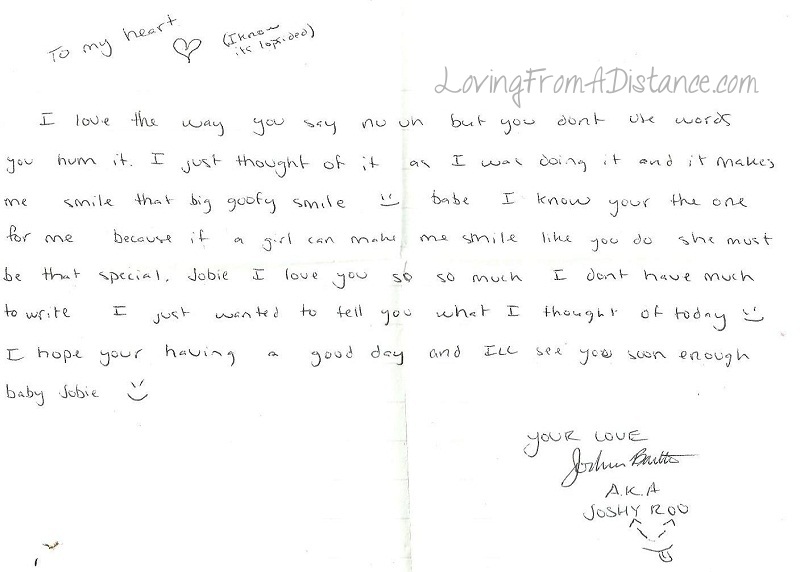 To my heart
(I know
its lopsided)
LovingFromADistance.com
I love the way you say nu uh but you dont use words
you hum it. I just thought of it as I was doing it and it makes
me smile that big goofy smile babe I know your the one
for me because if a girl can make me smile like you do she must
be that special. Jobie I love you so so much I dont have much
to write I just wanted to tell you what I thought of today
I hope your having a good day and Ill see you soon enough
baby Jobie
YOUR LOVE
A.K.A
JOSHY ROO